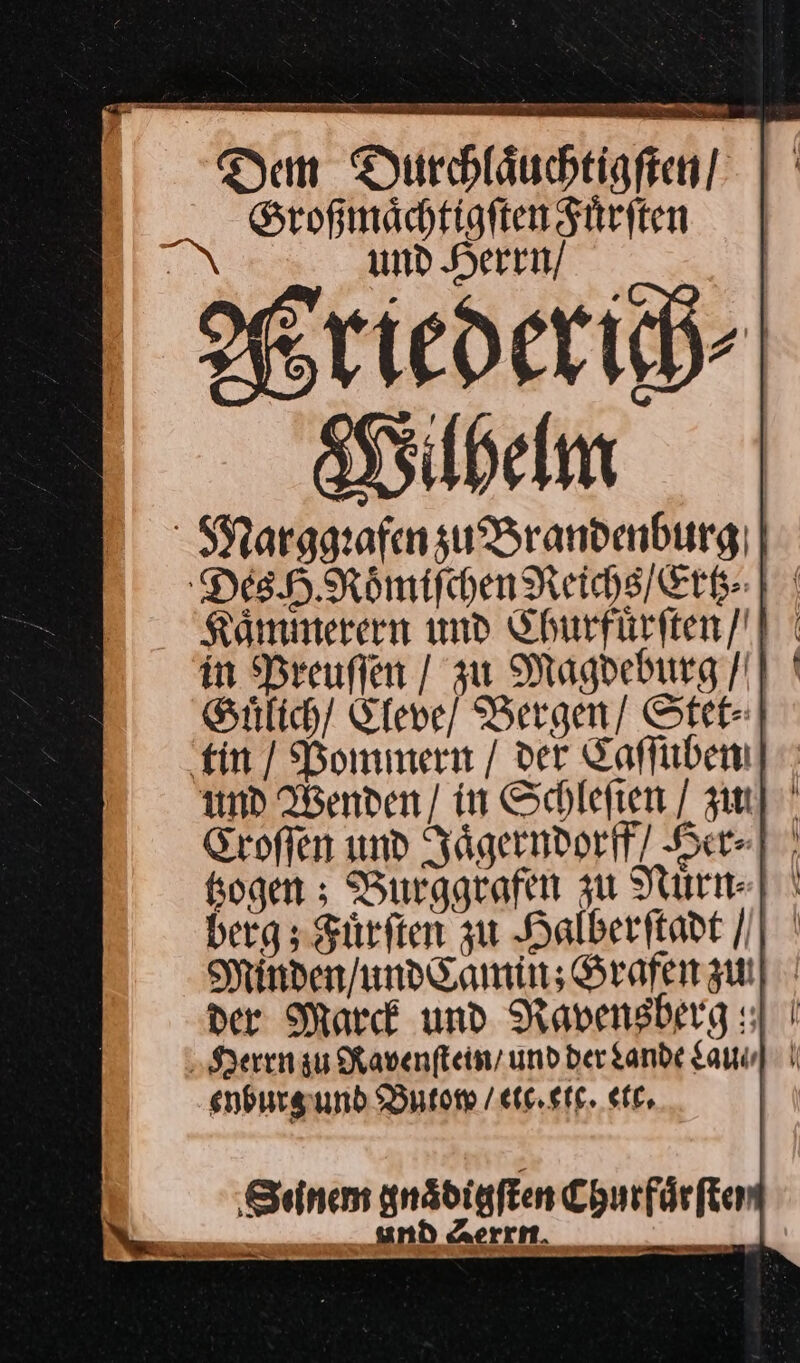 Dem Durchlaͤuchtigſten/
Großmaͤchtigſten Fuͤrſten
und Herrn/
Friederich⸗
Wilhelm
Marggrafen zu Brandenburg
Des H. Roͤmiſchen Reichs/ Ertz⸗
Kaͤmmerern und Churfuͤrſten/
in Preuſſen / zu Magdeburg /
Guͤlich/ Cleve/ Bergen/ Stet⸗
tin / Pommern / der Caſſuben
und Wenden / in Schleſien / zu
Croſſen und Jaͤgerndorff/ Her⸗
tzogen ; Burggrafen zu Nuͤrn⸗
berg ; Fuͤrſten zu Halberſtadt /
Minden/ und Camin; Grafen zu
der Marck und Ravensberg :
Herrn zu Ravenſtein/ und der Lande Lau⸗
enburg und Butow / etc. etc. etc.
Seinem gnaͤdigſten Churfuͤrſten
und Herrn.